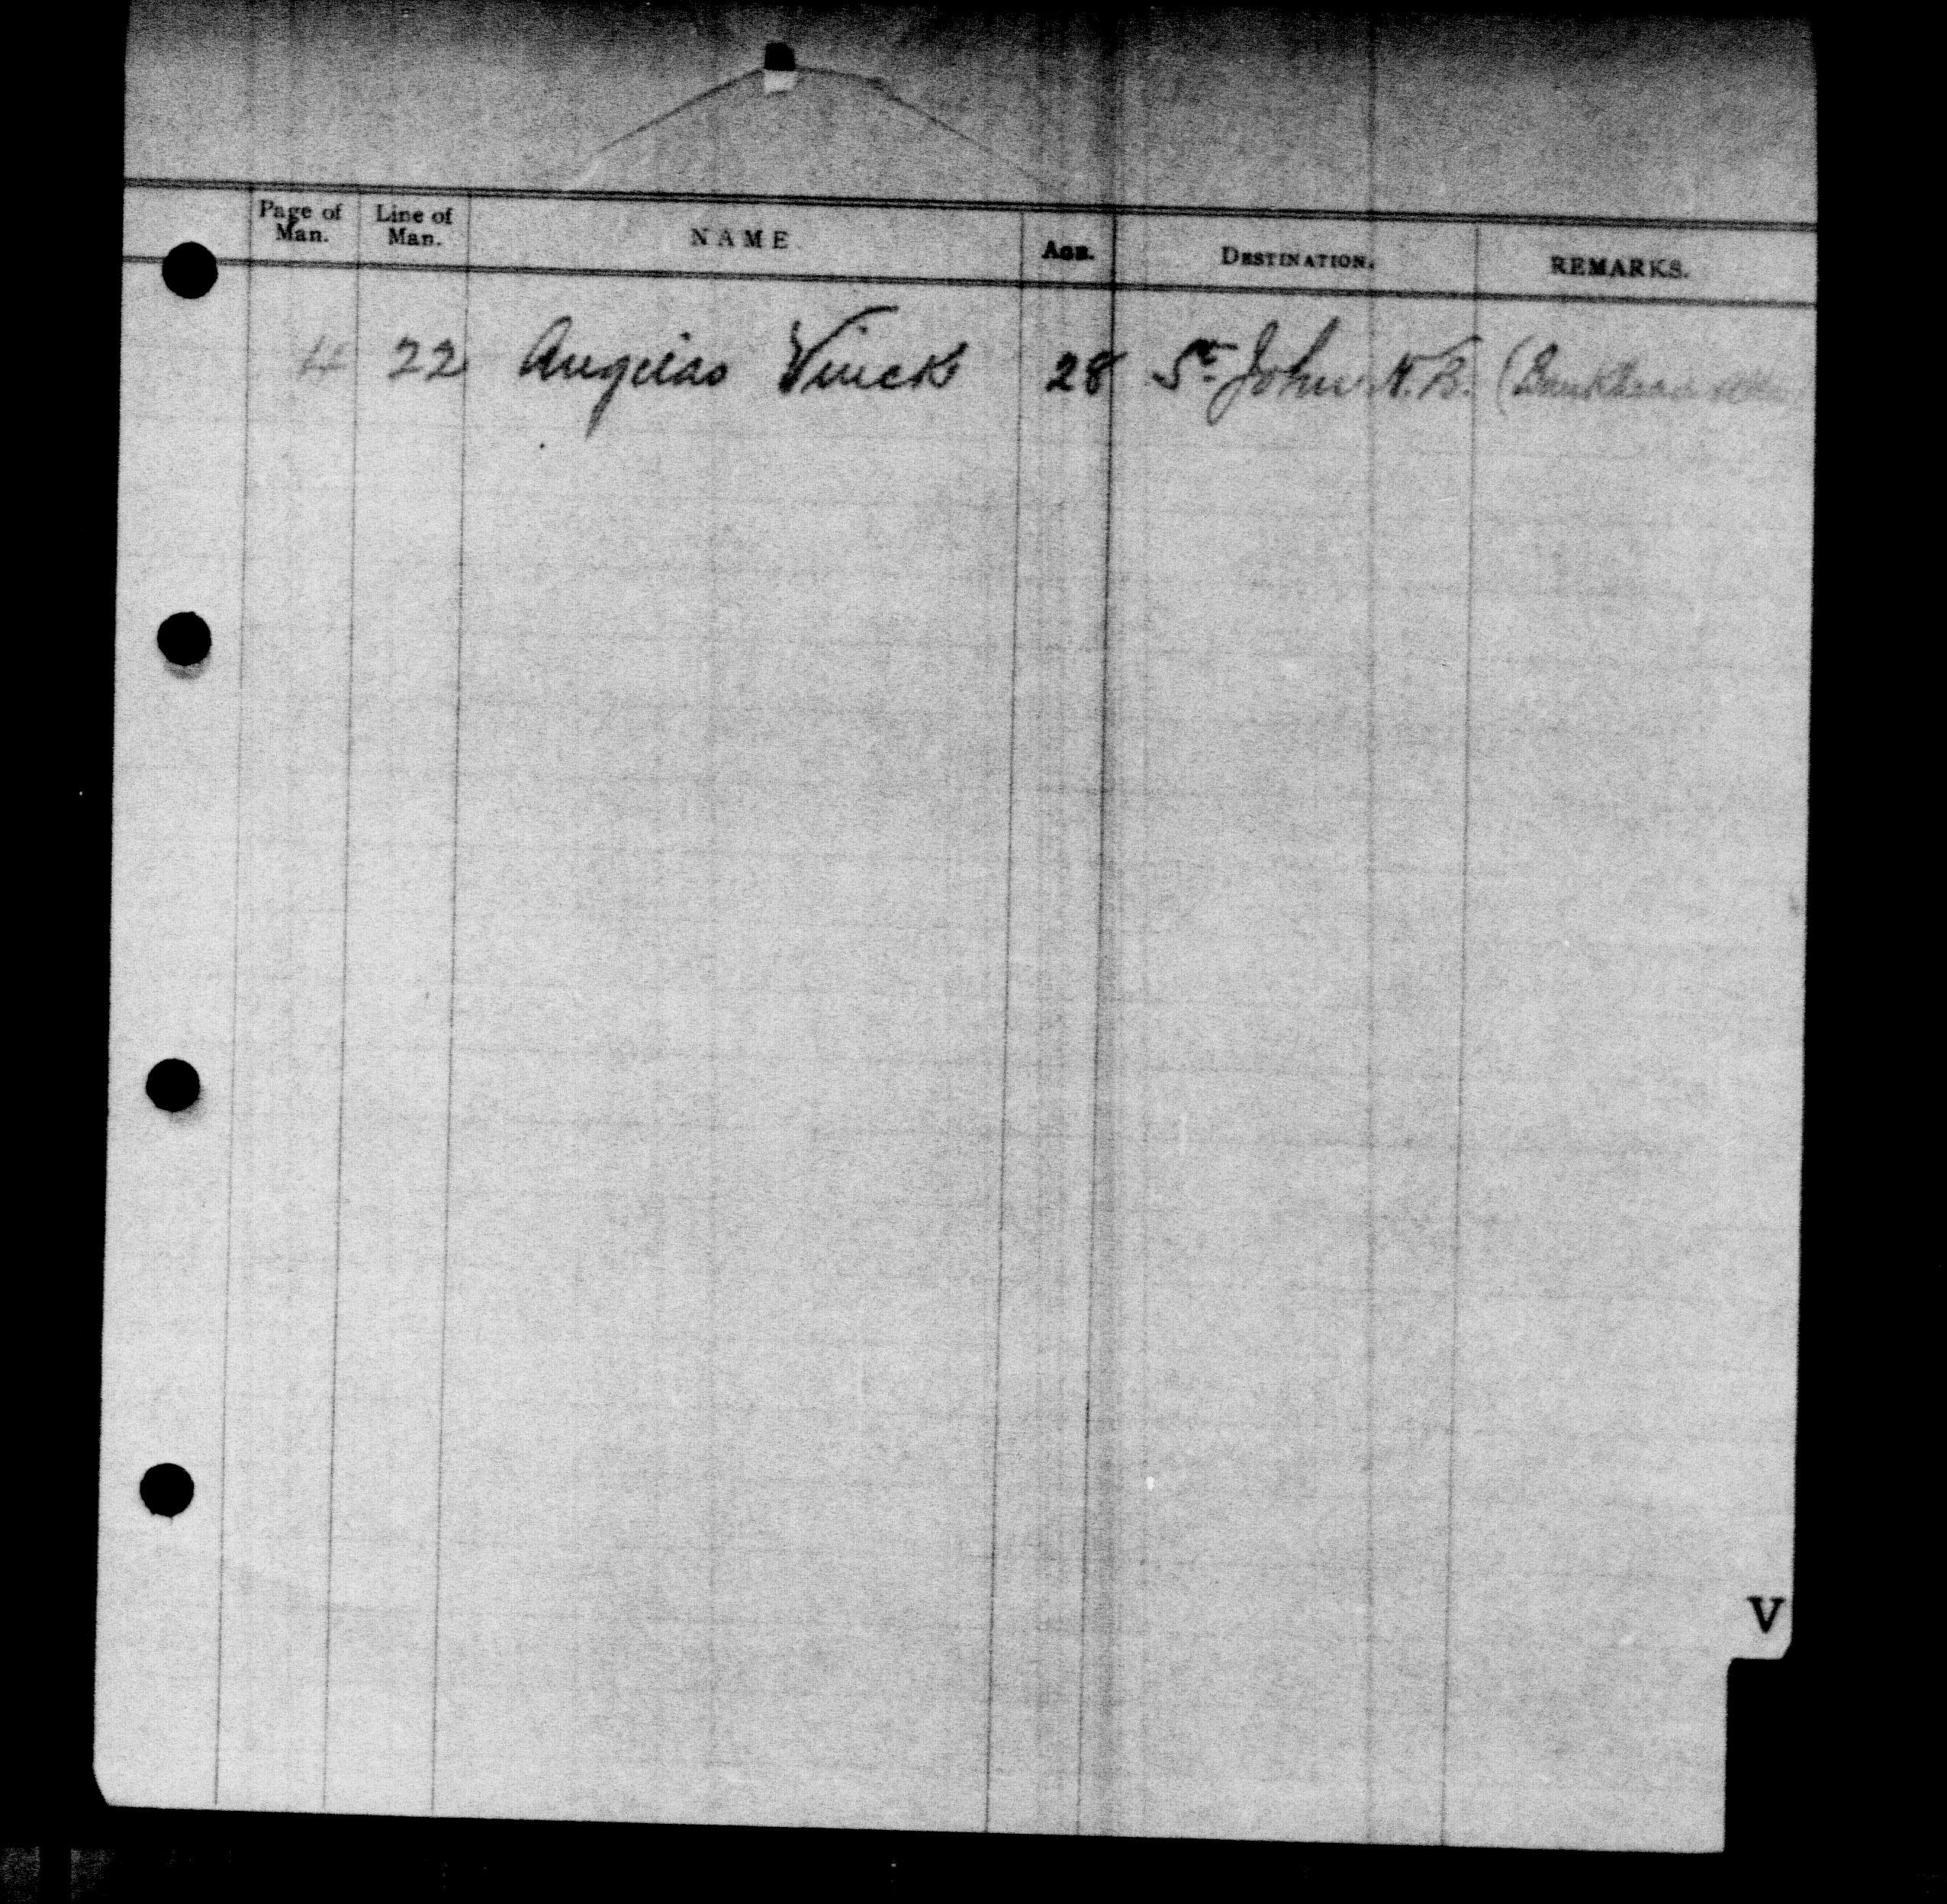 Page of Man. Line of Man. NAME AGE. DESTINATION. REMARKS.
4 22 Angelas Vinck 28 St. John N.B. (Bankhead
V